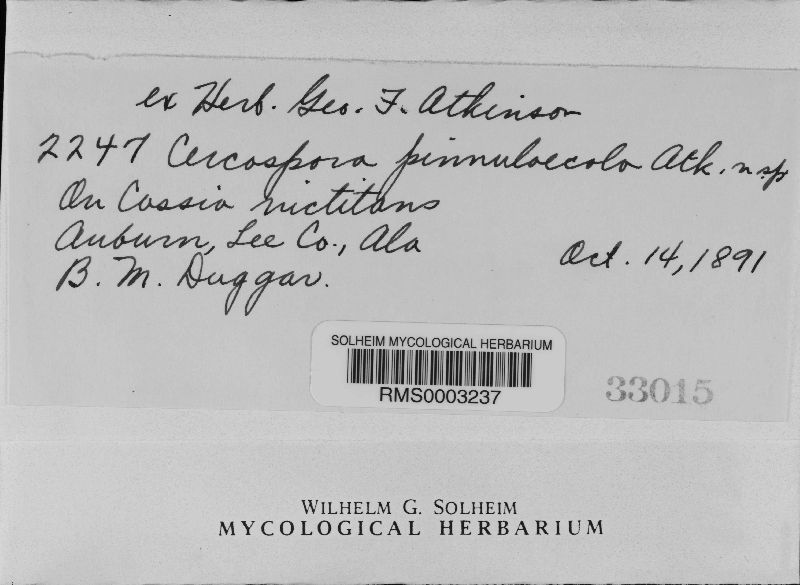 ex Herb. Geo. F. Atkinson
2247 Cercospora pinnulaecola Atk. n sp
On Cassia nictitans
Auburn, Lee Co., Ala
Oct. 14, 1891
B. M. Duggar.
SOLHEIM MYCOLOGICAL HERBARIUM
RMS0003237
33015
WILHELM G. SOLHEIM
MYCOLOGICAL HERBARIUM